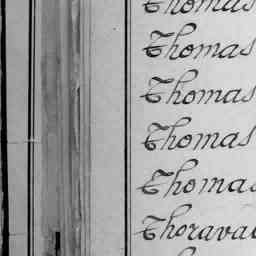 Thomas
Thomas
Thomas
Thomas
Thomas